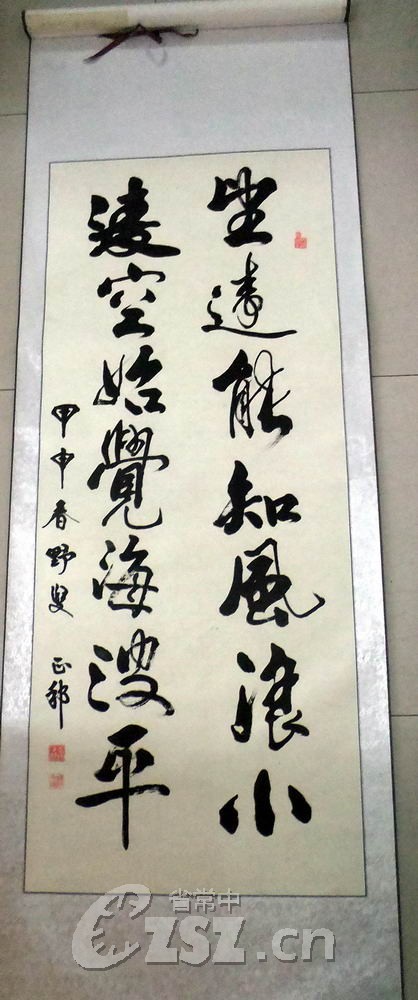 望遠能知風浪小
凌空始覺海波平
甲申春野叟 正
省常中
CZSZ.cn